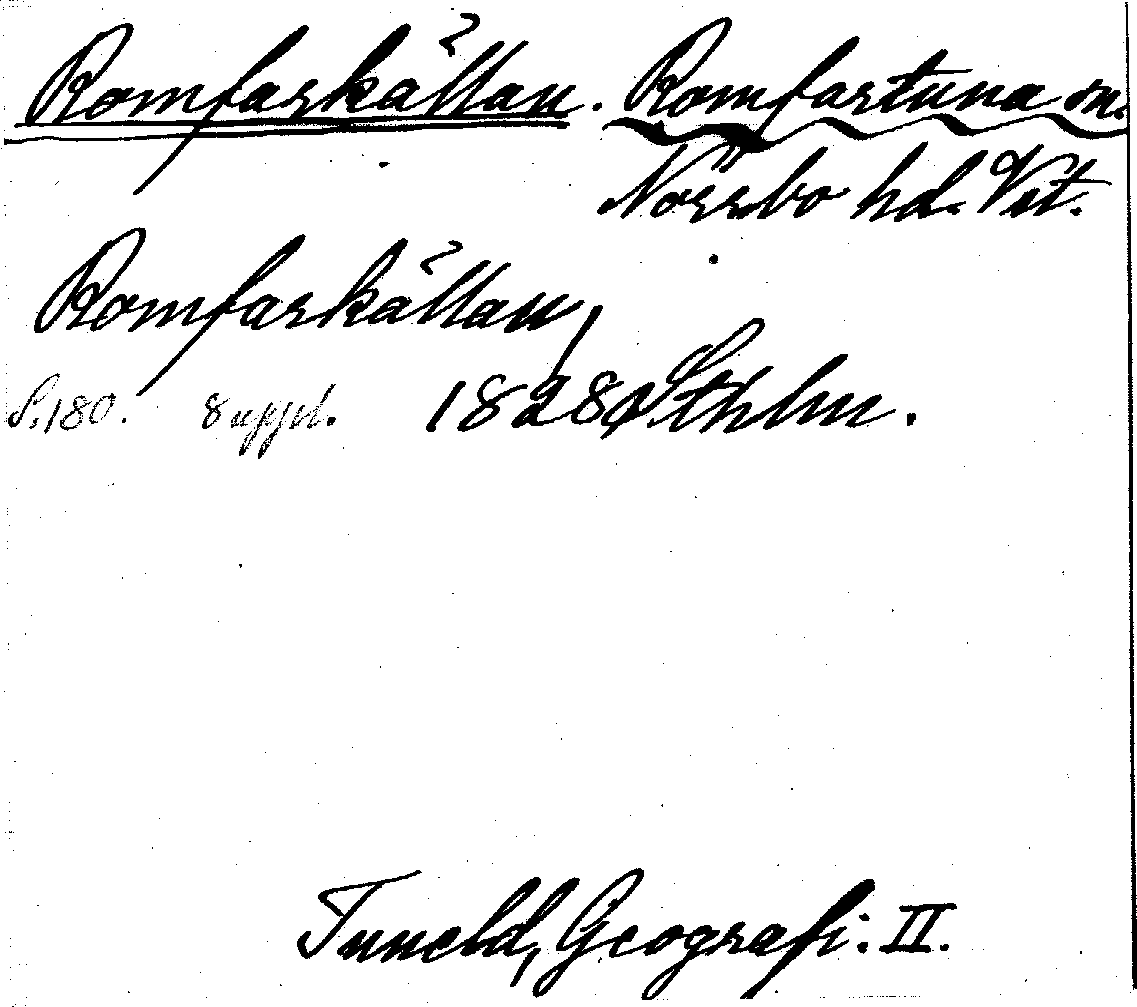 Romfarskällan. Romfartuna sn.
Norrbo hd. Vst.
Romfarskällan,
S. 180. 8 uppl. 1828, Sthlm.
Tuneld, Geografi. II.